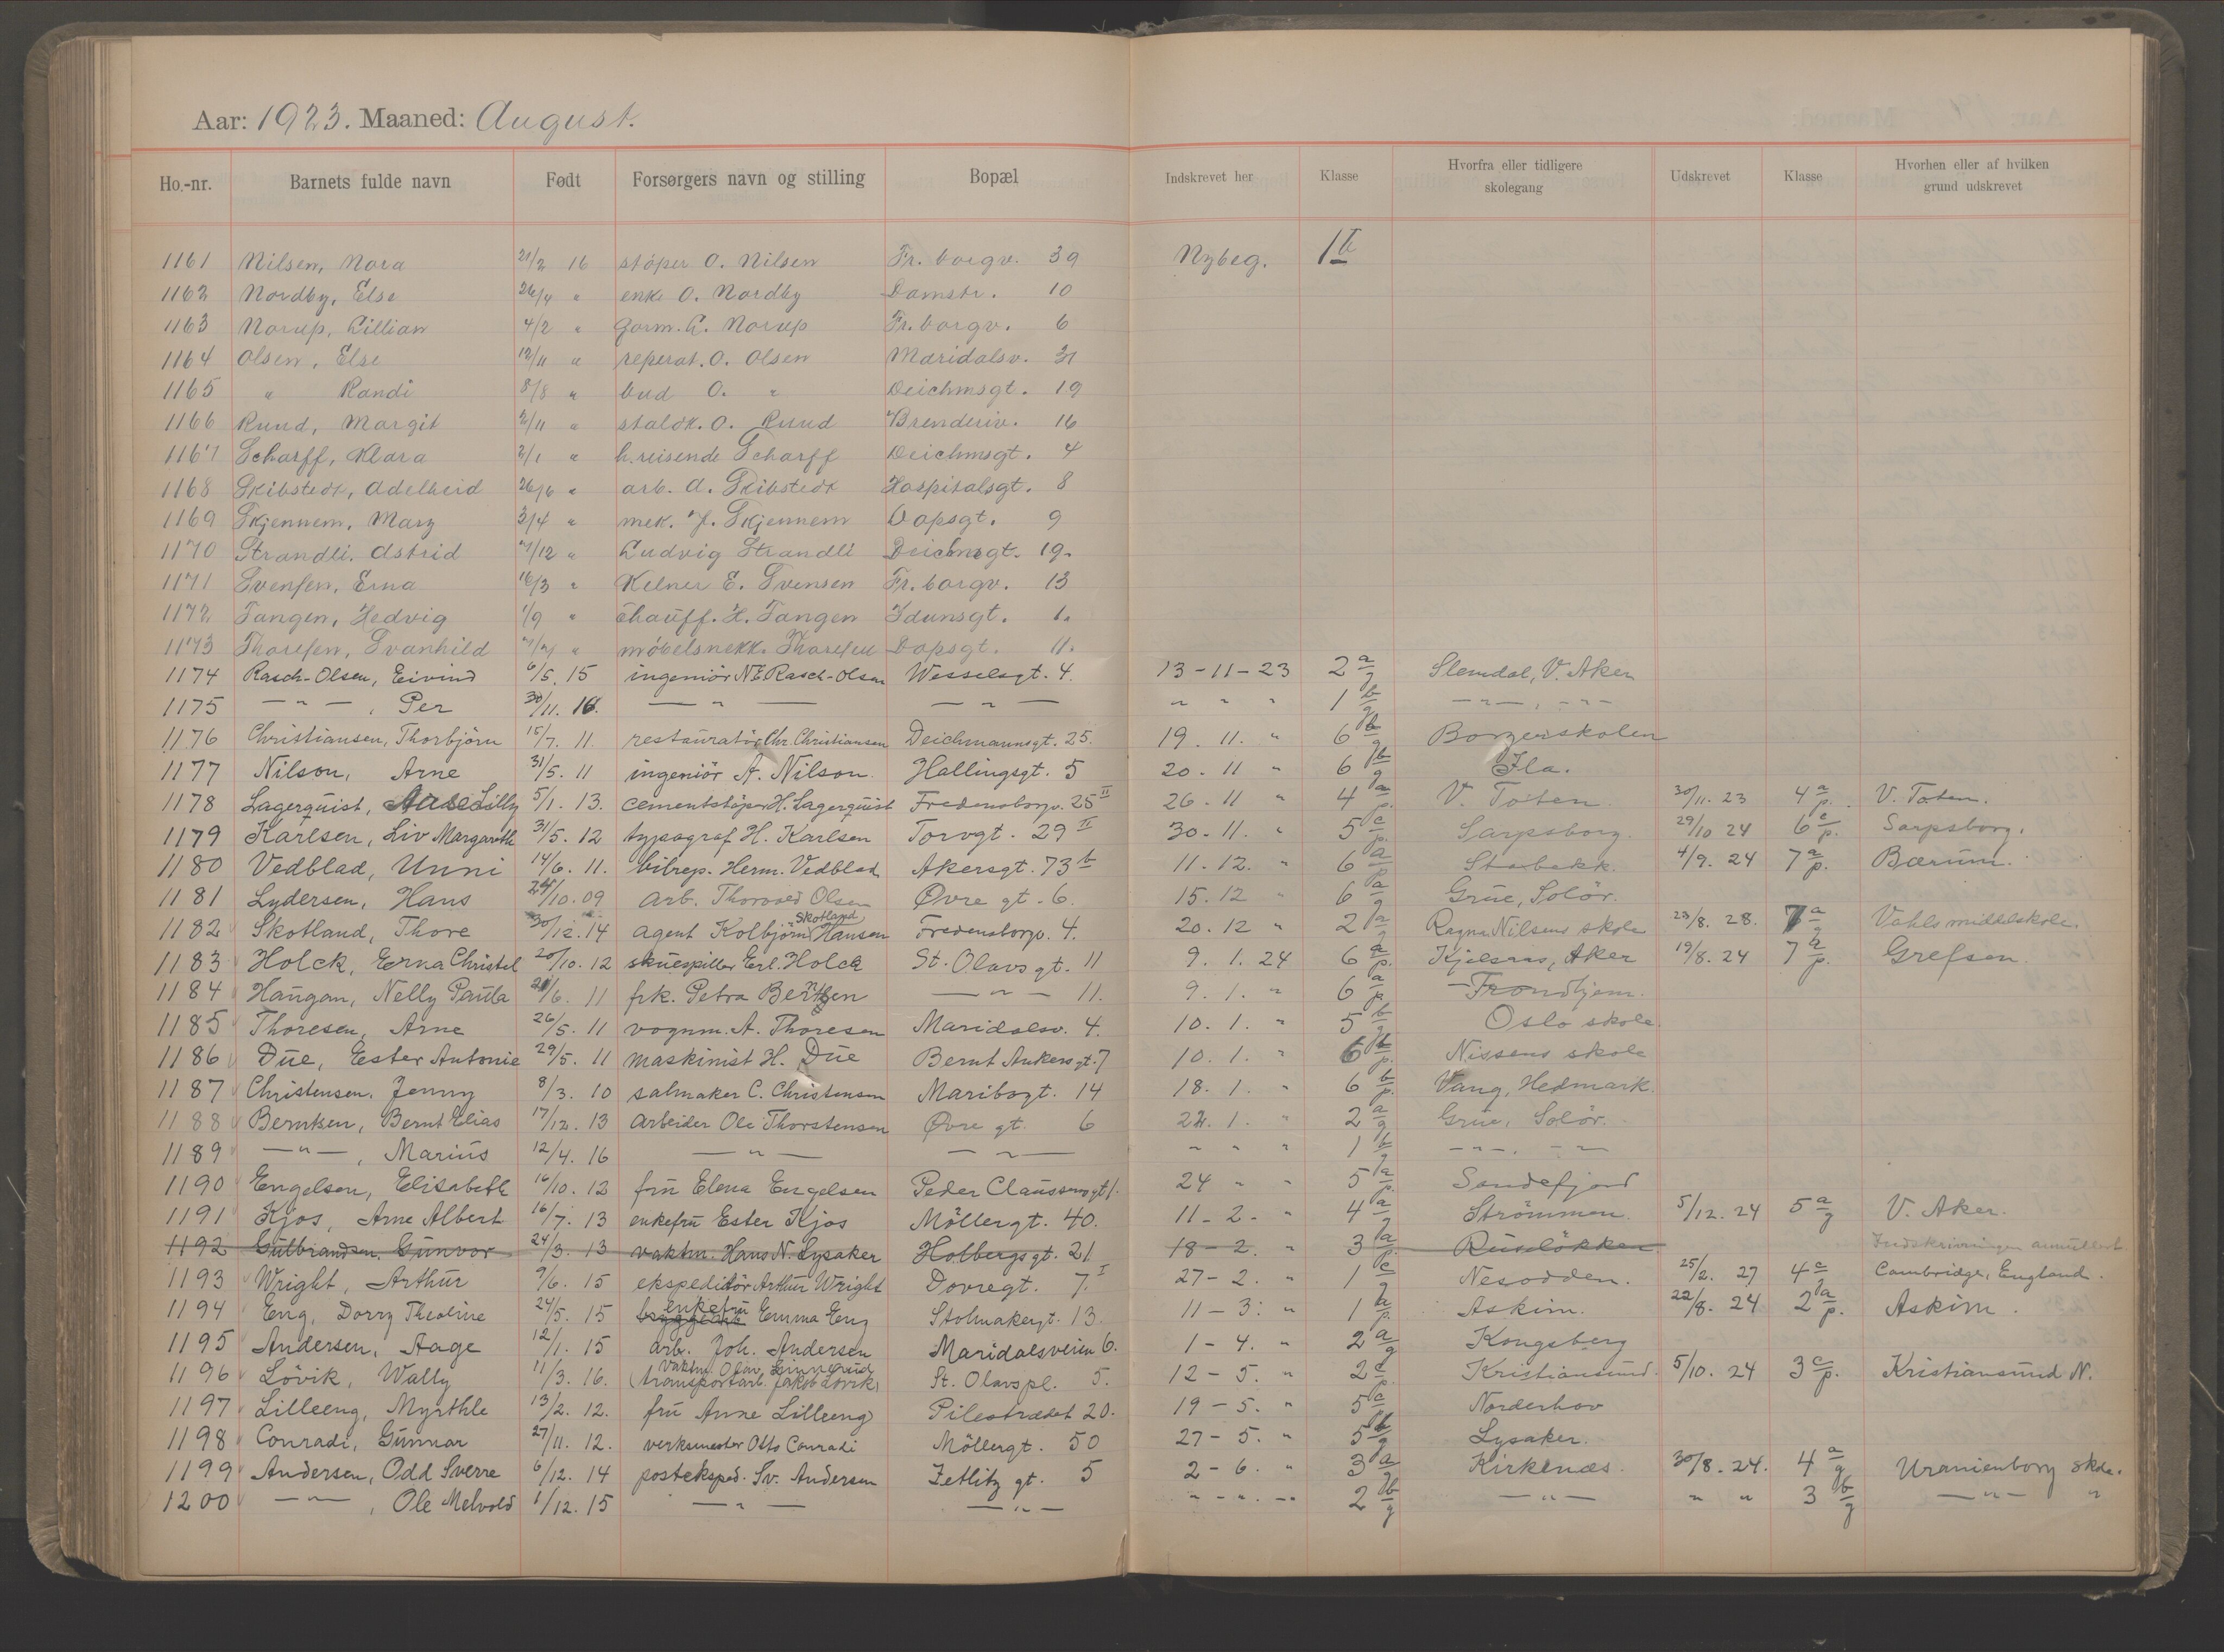 Aar: 1923. Maaned: August.
Ho.-nr. Barnets fulde navn Født Forsørgers navn og stilling Bopæl Indskrevet her Klasse Hvorfra eller tidligere skolegang Udskrevet Klasse Hvorhen eller af hvilken grund udskrevet
1161 Nilsen, Nora 21/2 16 støper O. Nilsen Fr. borgv. 39 Nybeg. 1 b
1162 Nordby, Else 26/4 " enke O. Nordby Damstr. 10
1163 Norup, Lillian 4/2 " gorm. C. Norup Fr. borgv. 6
1164 Olsen, Else 12/11 " reperat. O. Olsen Maridalsv. 31
1165 " Randi 8/8 " bud O. " Deichmsgt. 19
1166 Ruud, Margit 2/11 " staldk. O. Ruud Brenderiv. 16
1167 Scharff, Klara 2/1 " h.reisende Scharff Deichmsgt. 4
1168 Skibstedt, Adelheid 26/6 " arb. A. Skibstedt Hospitalsgt. 8
1169 Skjennem, Mary 3/4 " mek. J. Skjennem Dopsgt. 9
1170 Strandli, Astrid /12 " Ludvig Strandli Deichmsgt. 19.
1171 Svensen, Erna 16/3 " Kelner E. Svensen Fr. borgv. 13
1172 Tangen, Hedvig 1/9 " chauff. H. Tangen Idunsgt. 1.
1173 Thoresen, Svanhild " møbelsnekk. Thoresen Dopsgt. 11.
1174 Rasch-Olsen, Eivind 6/5. 15 ingeniör N.E. Rasch-Olsen Wesselsgt. 4. 13-11-23 2 a/g Slemdal, V. Aker
1175 — " — , Per 30/11. 16. — " — — " — " " " 1 b/g — " — , - " -
1176 Christiansen, Thorbjörn 15/7. 11. restauratör Chr. Christiansen Deichmannsgt. 25. 19. 11. " 6 b/g Borgerskolen
1177 Nilson, Arne 31/5. 11 ingeniör A. Nilson. Hallingsgt. 5 20. 11 " 6 b/g Ila.
1178 Lagerquist, Aase Lilly 5/1. 13. cementstöper H. Lagerquist Fredensborgv. 25 II 26. 11 " 4 a/p. V. Toten. 30/11. 23 4 a/p. V. Toten.
1179 Karlsen, Liv Margareth 31/5. 12 typograf H. Karlsen Torvgt. 29 II 30. 11. " 5 c/p. Sarpsborg. 29/10 24 6 c/p. Sarpsborg.
1180 Vedblad, Unni 14/6. 11. bilrep. Herm. Vedblad Akersgt. 73 b 11. 12. " 6 a/p Stabekk. 4/9. 24 7 a/p. Bærum.
1181 Lydersen, Hans 24/10. 09 arb. Thorvald Olsen Øvre gt. 6. 15. 12 " 6 a/g Grue, Solör.
1182 Skotland, Thore 30/12. 14 agent Kolbjörn Skotland Hansen Fredensborgv. 4. 20. 12 " 2 a/g Ragna Nilsens skole 23/8. 28. 7 a/g Vahls middelskole.
1183 Holck, Erna Christel 20/10. 12 skuespiller Erl. Holck St. Olavs gt. 11 9. 1. 24 6 a/p. Kjelsaas, Aker 19/8. 24 7 b/p. Grefsen.
1184 Haugan, Nelly Paula 21/6. 11 frk. Petra Berntzen — " — 11. 9. 1. " 6 a/p Trondhjem.
1185 Thoresen, Arne 26/5. 11 vognm. A. Thoresen Maridalsv. 4. 10. 1. " 5 b/g Oslo skole.
1186 Due, Ester Antonie 29/5. 11 maskinist H. Due Bernt Ankers gt. 7 10. 1. " 6 b/p. Nissens skole
1187 Christensen, Jenny 8/3. 10 salmaker C. Christensen Maribogt. 14 18. 1. " 6 b/p. Vang, Hedmark.
1188 Berntsen, Bernt Elias 17/12. 13 arbeider Ole Thorstensen Øvre gt. 6 22. 1. " 2 a/g Grue, Solör.
1189 — " — , Marius 12/4. 16 — " — — " — " " " 1 b/g — " — . - " -
1190 Engelsen, Elisabeth 16/10. 12 fru Elena Engelsen Peder Claussøns gt 1. 24 " " 5 a/p. Sandefjord
1191 Kjos, Arne Albert 16/7. 13 enkefru Ester Kjos Möllergt. 40. 11-2. " 4 a/g Strömmen. 5/12. 24 5 a/g V. Aker.
1192 Gulbrandsen, Gunvor 24/3. 13 vaktm. Hans N. Lysaker Holbergs gt. 21 18-2. " 3 a/p. Ruselökken. Indskrivningen annullert
1193 Wright, Arthur 9/6. 15 ekspeditör Arthur Wright Dovregt. 7. I 27-2. " 1 c/g Nesodden. 25/2. 27 4 c/g Cambridge, England.
1194 Eng, Dorry Theoline 24/5. 15 enkefru Emma Eng Stolmakergt. 13. 11-3. " 1 a/p. Askim. 22/8. 24 2 a/p. Askim.
1195 Andersen, Aage 12/1. 15 arb. Joh. Andersen Maridalsveien 6. 1-4. " 2 a/g Kongsberg
1196 Lövik, Wally 11/3. 16. vaktm. Olav Linnerud (transportarb. Jakob Lövik) St. Olavs pl. 5. 12-5. " 2 c/p. Kristiansund. 5/10. 24 3 c/p. Kristiansund N.
1197 Lilleeng, Myrthle 13/2. 12. fru Anne Lilleeng Pilestrædet 20. 19-5. " 5 a/p Norderhov
1198 Conradi, Gunnar 27/11. 12. verksmester Otto Conradi Möllergt. 50 27-5. " 5 b/g Lysaker.
1199 Andersen, Odd Sverre 6/12. 14 posteksped. Sv. Andersen Zetlitz gt. 5 2-6. " 3 a/g Kirkenæs. 30/8. 24. 4 a/g Uranienborg skole.
1200 — " — , Ole Melvold 1/12. 15 — " — — " — " - " . - " 2 b/g — " — " " 3 b/g — " — "